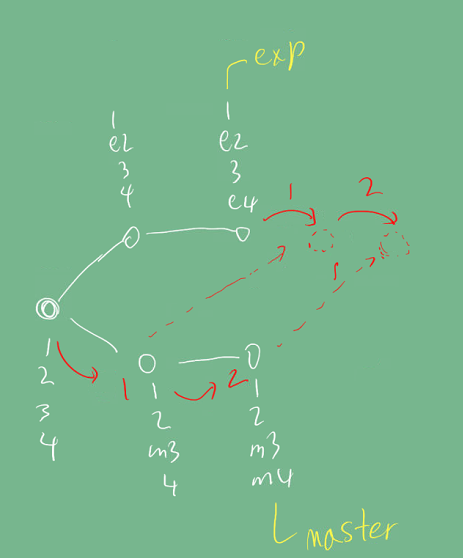 exp
1
e2
3
4
1
e2
3
e4
1
2
1
2
3
4
1
2
1
2
m3
4
1
2
m3
m4
master